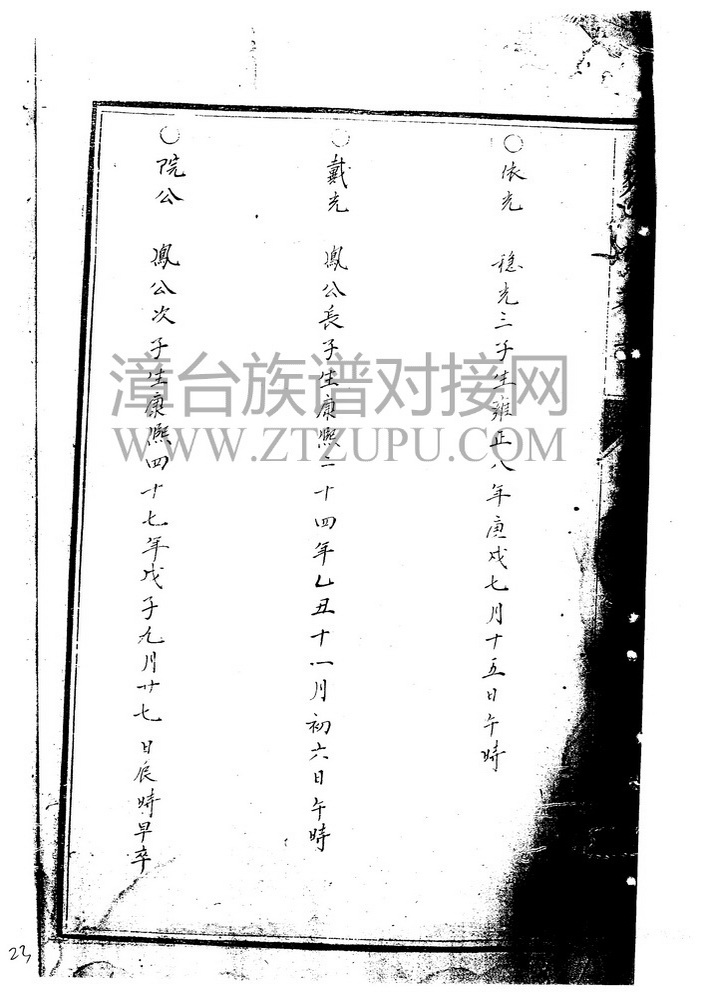 ○依光 穏光三子生雍正八年庚戌七月十五日午時
○戴光 鳳公長子生康熙二十四年乙丑十一月初六日午時
○院公 鳳公次子生康熙四十七年戊子九月廿七日辰時早卒
漳台族谱对接网
WWW.ZTZUPU.COM
23